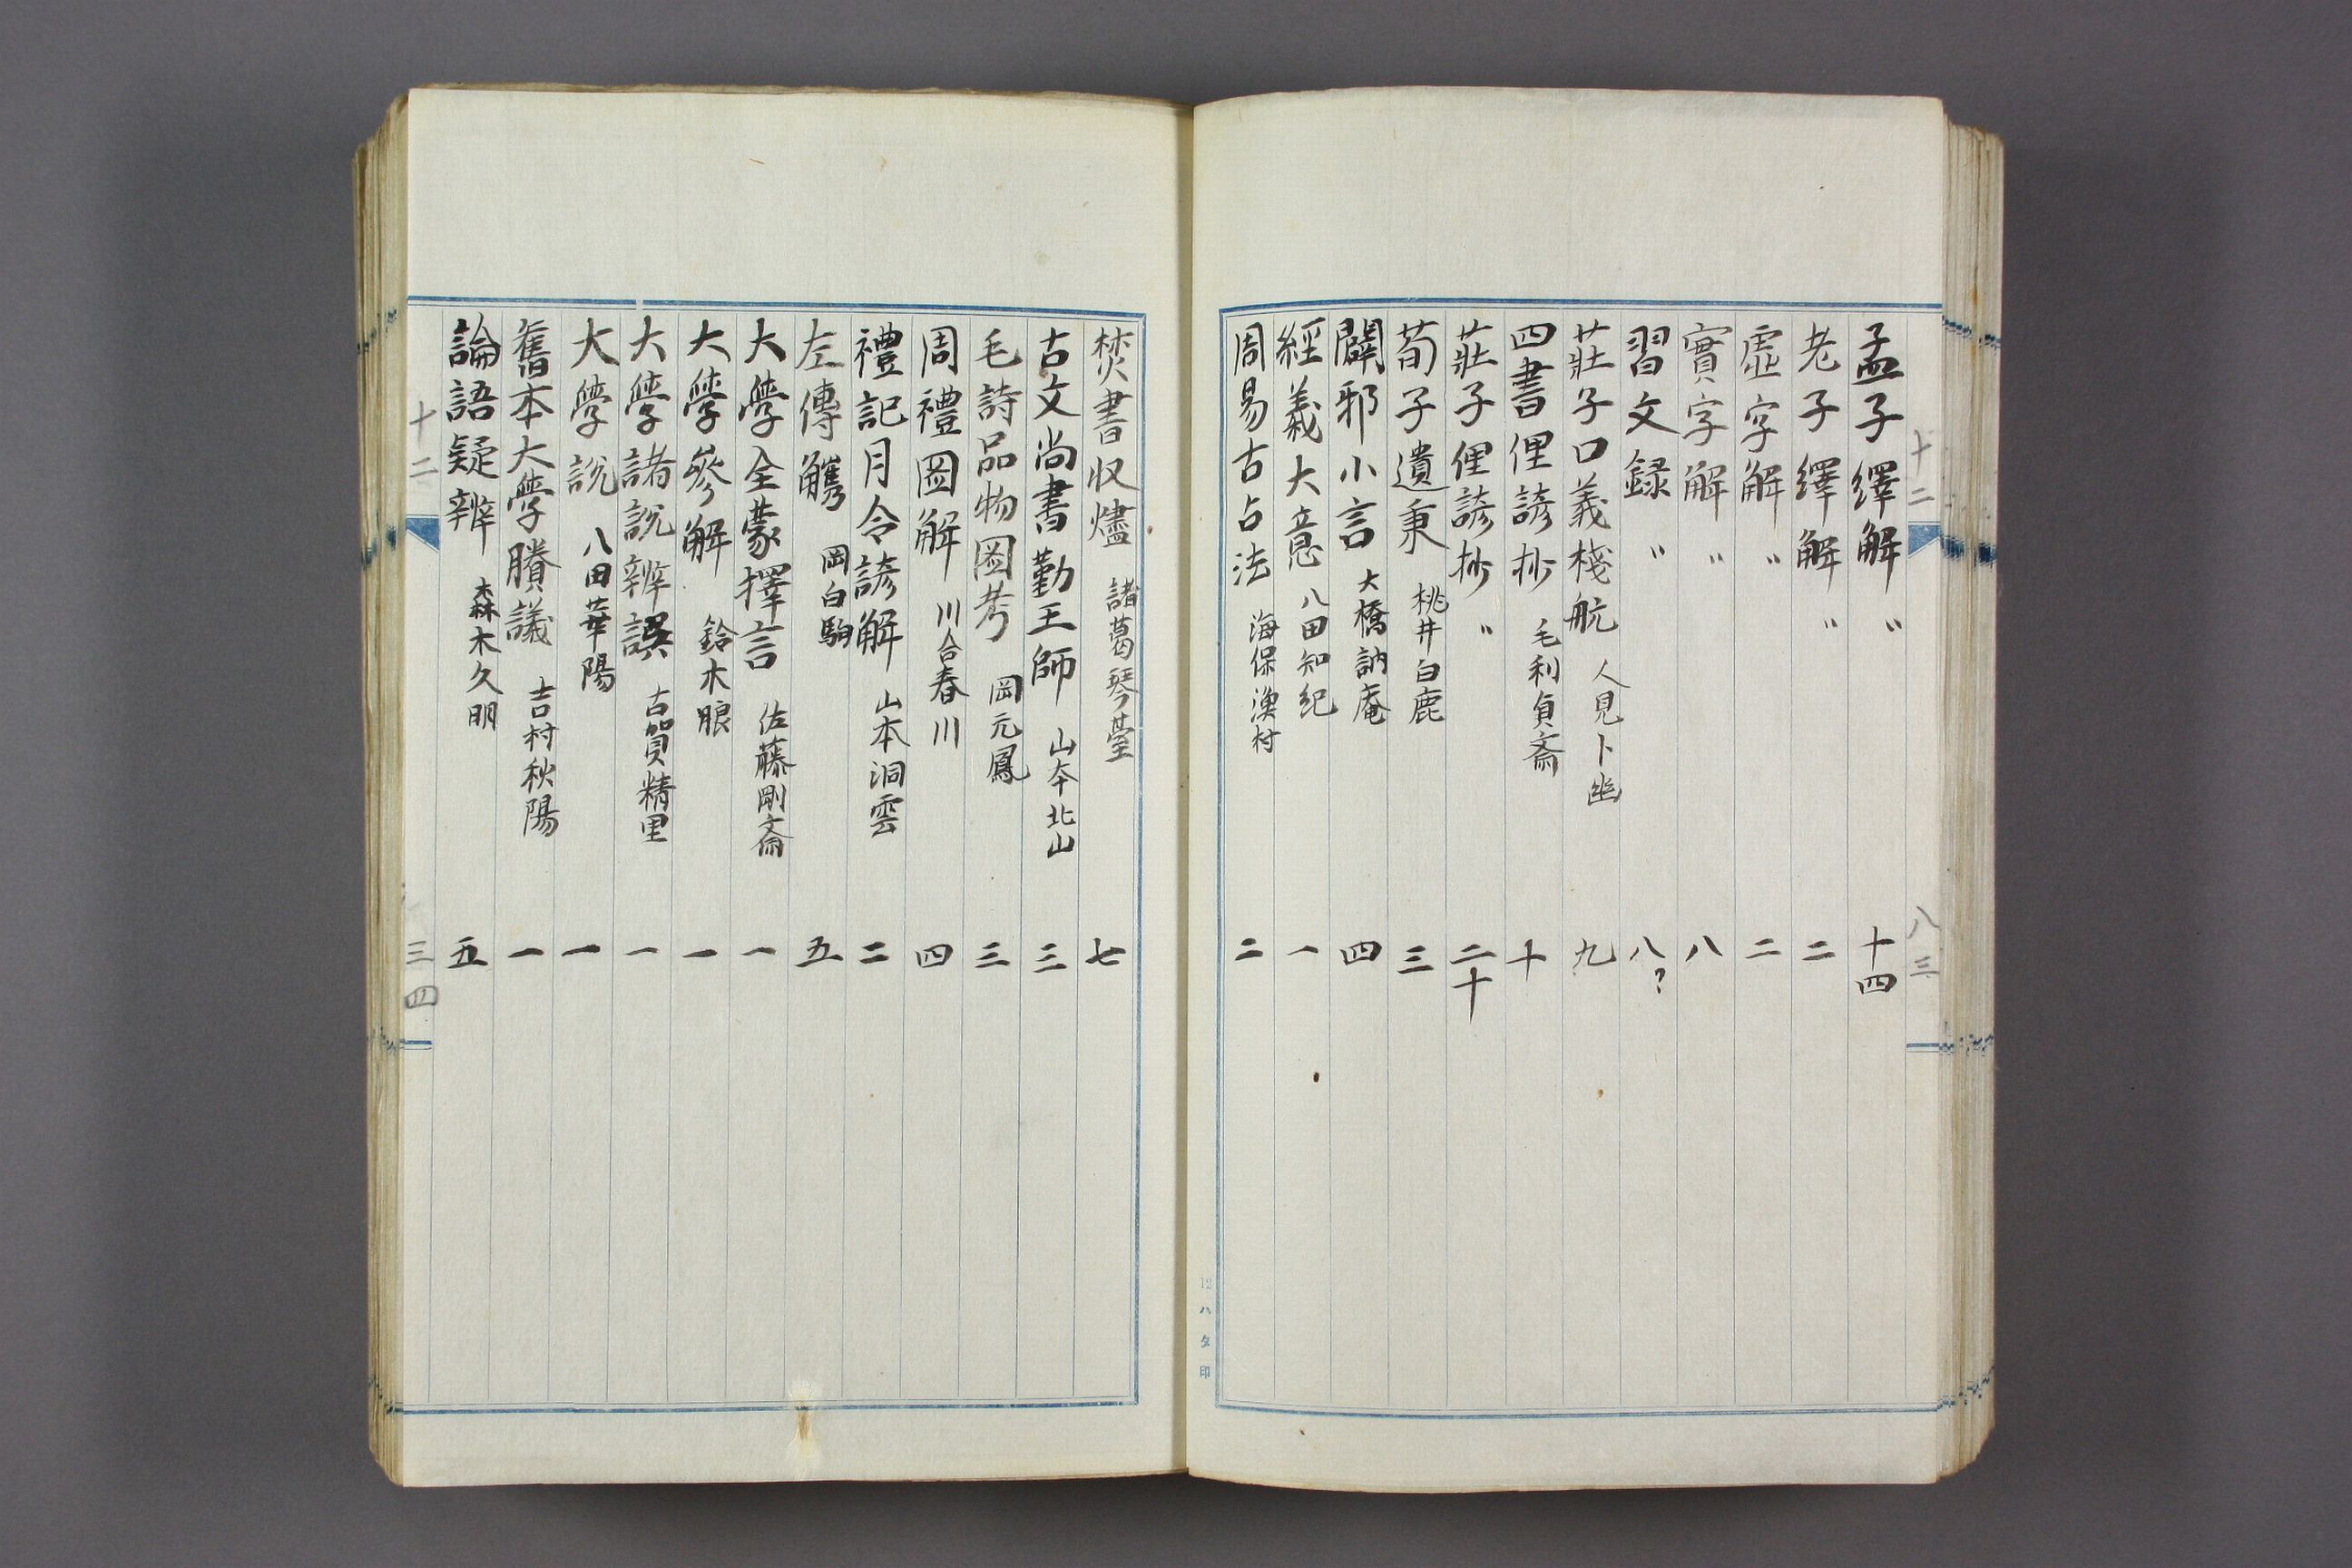 十二 八三
孟子繹解 〃 十四
老子繹解 〃 二
虛字解 〃 二
實字解 〃 八
習文録 〃 八?
莊子口義棧航 人見卜幽 九
四書俚諺抄 毛利貞斎 十
莊子俚諺抄 〃 二十
荀子遺秉 桃井白鹿 三
闢邪小言 大橋訥庵 四
經義大意 八田知紀 一
周易古占法 海保漁村 二
12 ハタ印
焚書収燼 諸葛琴臺 七
古文尚書勤王師 山本北山 三
毛詩品物図考 岡元鳳 三
周禮図解 川合春川 四
禮記月令諺解 山本洞雲 二
左傳觿 岡白駒 五
大學全蒙擇言 佐藤剛斎 一
大學參解 鈴木朖 一
大學諸説辨誤 古賀精里 一
大學説 八田華陽 一
舊本大學賸議 吉村秋陽 一
論語疑辨 森木久明 五
十二 三四